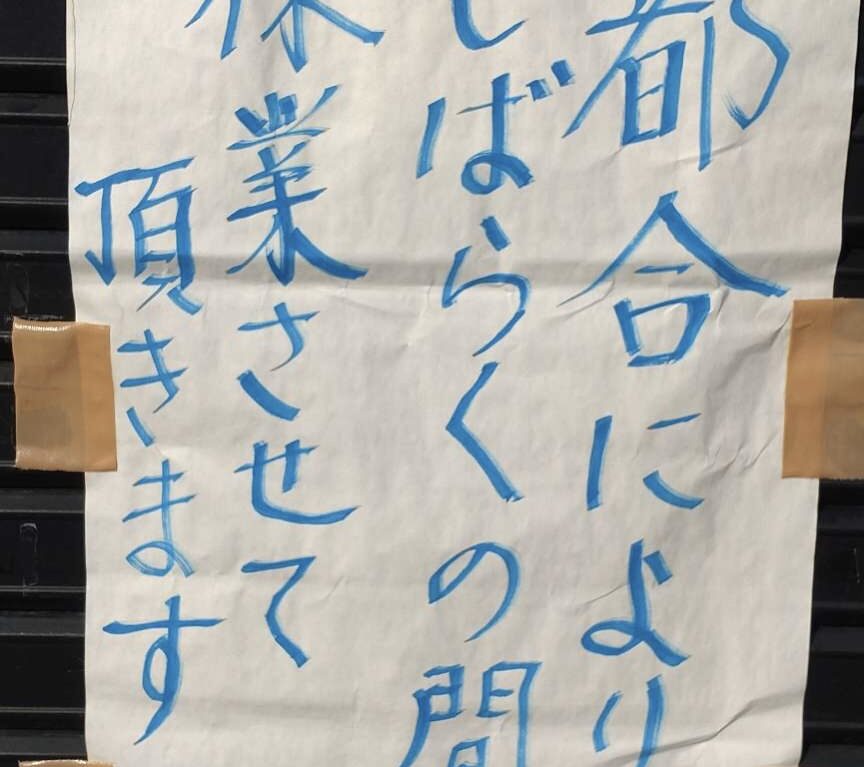 都合により
しばらくの間
休業させて
頂きます